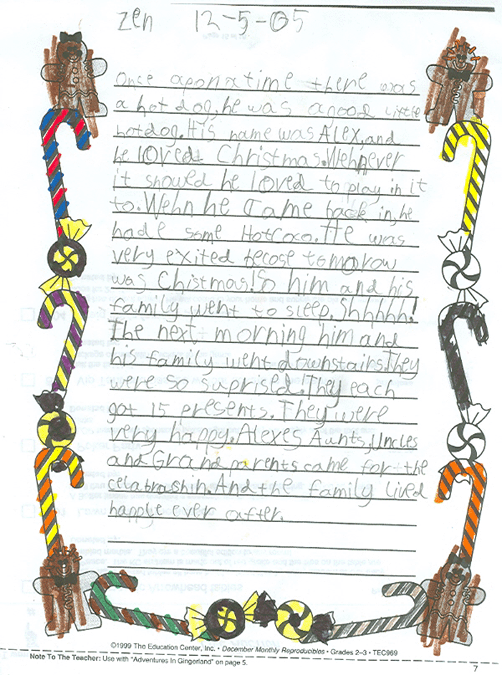 Zen 12-5-05
Once apon a time there was
a hot dog. he was a good little
hotdog. His name was Alex. and
he loved Christmas. Wehnever
it snowed he loved to play in it
to. Wehn he came back in, he
hade some Hotcoco. He was
very exited becose tomorrow
was Chistmas! So him and his
family went to sleep. Shhhhh!
The next morning him and
his family went downstairs. They
were so suprised. They each
got 15 presents. They were
very happy. Alexes Aunts, Uncles
and Grand parents came for the
celabrashin. And the family lived
happle ever after.
©1999 The Education Center, Inc. • December Monthly Reproducibles • Grades 2–3 • TEC969
Note To The Teacher: Use with "Adventures In Gingerland" on page 5.
7